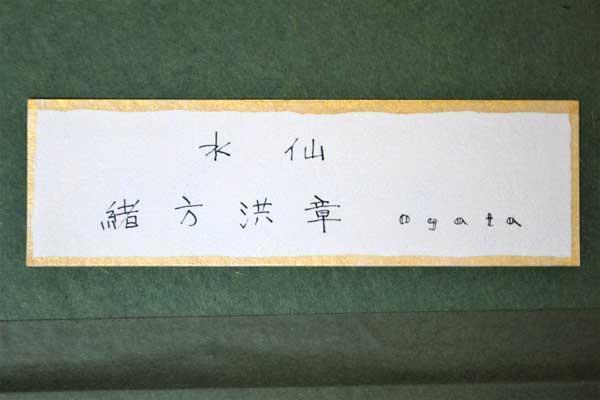 水仙
緒方洪章 Ogata